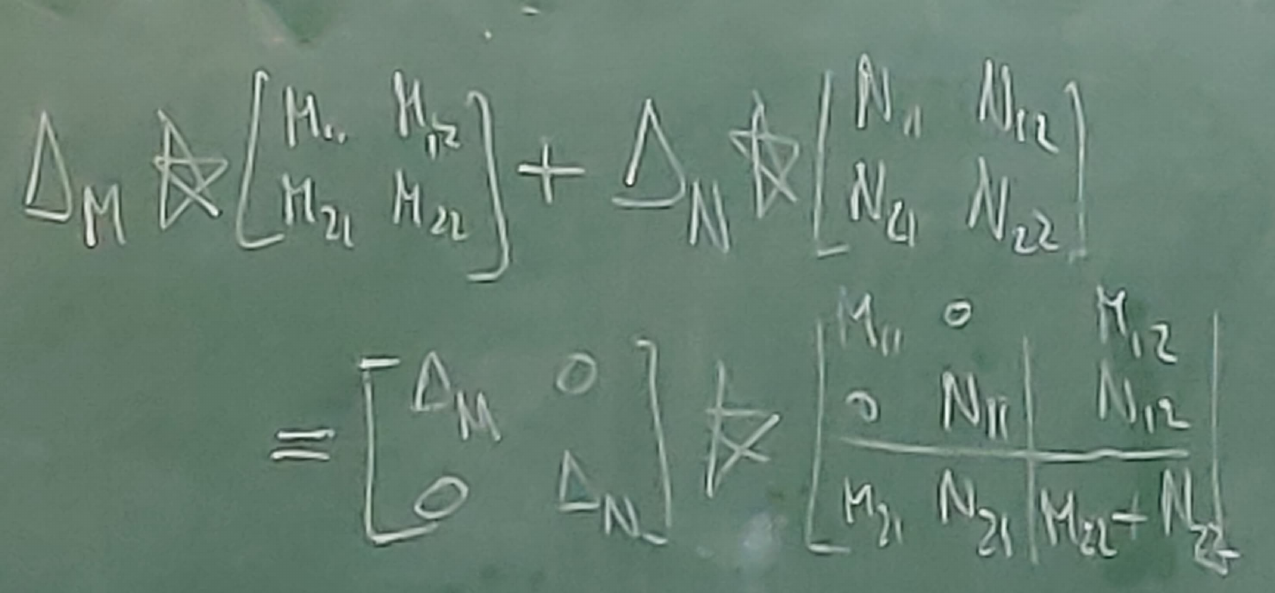 Δ_M ☆ [M₁₁ M₁₂; M₂₁ M₂₂] + Δ_N ☆ [N₁₁ N₁₂; N₂₁ N₂₂]
= [Δ_M 0; 0 Δ_N] ☆ [M₁₁ 0 | M₁₂; 0 N₁₁ | N₁₂; M₂₁ N₂₁ | M₂₂+N₂₂]